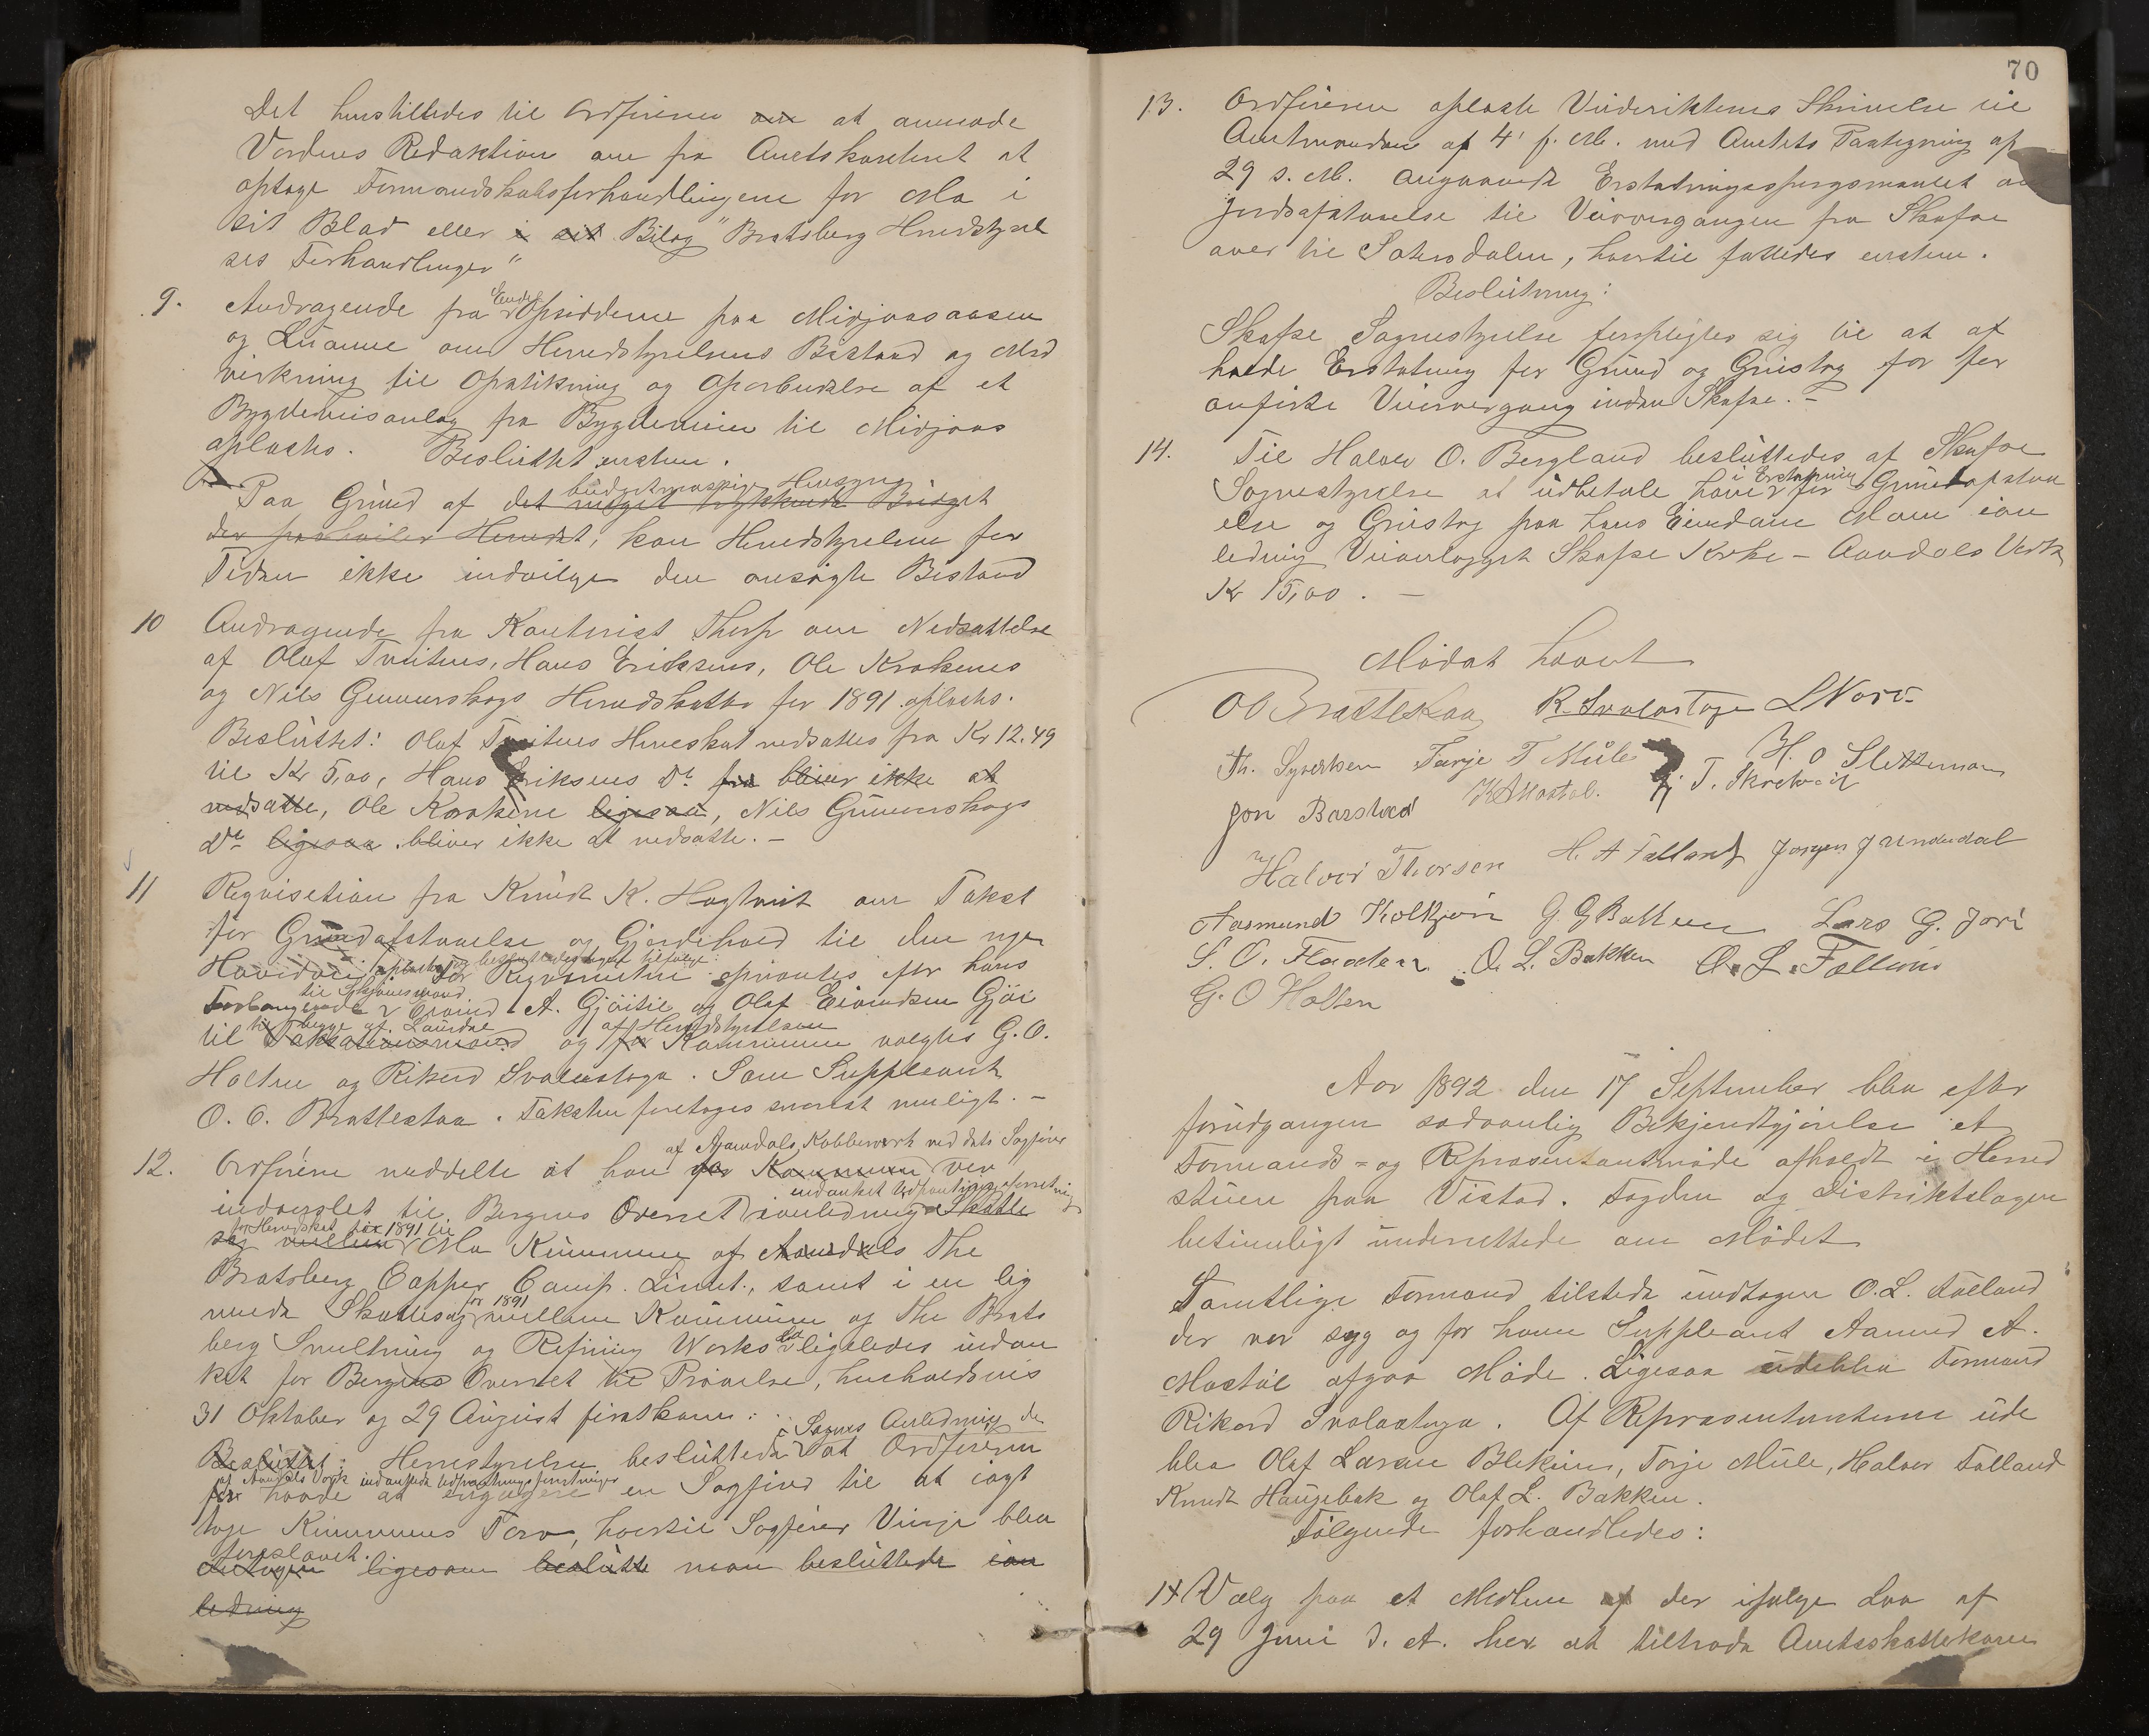 Det henstilledes til Ordføreren om at anmode
Vardens Redaktion om fra Amtskontoret at
optage Formandskabsforhandlingerne for Mo i
sit Blad eller i sit Bilag "Bratsberg Herredstyrel
ses Forhandlinger"
9. Andragende fra Endel Opsidderne paa Midjaasaasen
og om Herredstyrelsens Bistand og Med
virkning til Opstikning og Oparbeidelse af et
Bygdeveisanlæg fra Bygdeveien til Midjaas
oplæstes. Besluttet enstem.
Paa Grund af det meget trykkende Budget budgetmæssige Hensyn
der paahviler Herredet, kan Herredstyrelsen for
Tiden ikke indvilge den ansøgte Bistand
10 Andragende fra Kontorist Thorp om Nedsættelse
af Olaf Tveitens, Hans Eriksens, Ole Krokenes
og Nils Gunnerskogs Herredskatte for 1891 oplæstes.
Besluttet: Olaf Tveitens Herredskat nedsattes fra Kr 12.49
til Kr 5,00, Hans Eriksens Do fra bliver ikke at
nedsætte, Ole Krokene ligesaa, Nils Gunnerskogs
Do ligesaa bliver ikke at nedsætte. –
11 Reqvisition fra Knudt K. Hagtveit om Takst
for Grundafstaaelse og Gjærdehold til den nye
Hovedvei oplæstes og besluttedes taget tilfølge: For Reqvirenten opnævntes efter hans
Forlangende til Skjønsmænd Eivind A. Gjøitil og Olaf Eivindsen Gjøi
til Taksationsmænd begge af Laurdal og for Kommunen af Herredstyrelsen valgtes G. O.
Holten og Rikard Svalastoga. Som Suppleant
O. O. Brattestaa. Taksten foretages snarest muligt. –
12. Ordføreren meddelte at han for Kommunen var af Aamdals Kobberverk ved dets Sagfører
indvarslet til Bergens Overret i anledning Skatte indanket Udpantningsforretning
sag mellem for Herredskat for 1891 til Mo Kommune af Aamdals The
Bratsberg Copper Comp. Limt., samt i en lig
nende Skattesag for 1891 mellem Kommunen og The Brats
berg Smeltning og Refining Works Ltd ligeledes indan
ket for Bergens Overret til Prøvelse, henholdsvis
31 Oktober og 29 August førstkom:
Besluttet: Herredstyrelsen besluttede i Sagens Anledning de at Ordføreren
for havde at engagere af Aamdals Værk indankede Udpantningsforretninger en Sagfører til at iagt
tage Kommunens Tarv, hvortil Sagfører Vinje blev
foreslaaet.
ligesom beslutte man besluttede ian
ledning
70
13. Ordføreren oplæste Veidirektørens Skrivelse til
Amtmanden af 4' f. M. med Amtets Paategning af
29 s. M. angaaende Erstatningsspørgsmaalet
Jordafstaaelse til Veiovergangen fra Skafse
over til Sætersdalen, hvortil fattedes enstem.
Beslutning:
Skafse Sognestyrelse forpligter sig til at af
holde Erstatning for Grund og Grustag for før
anførte Veiovergang inden Skafse. –
14. Til Halvor O. Bergland besluttedes af Skafse
Sognestyrelse at udbetale ham i Erstatning for Grundafstaa
else og Grustag paa hans Eiendom Moen ian
ledning Veianlægget Skafse Kirke – Aamdals Værk
Kr 15,00. –
Mødet hævet
OO Brattestaa R. Svalastoga L Norv
Th. Syvertsen Tarje T Mule H. O Slettemoen
Jon Barstad K A Mostøl. T. Skretveit
Halvor Thorsen H. A Følland Jørgen J Undedal
Aasmund Kolkjøn G G Batteen Lars G. Jore
S. O. Flaaten O. L. Bakken O. L. Følland
G. O Holten
Aar 1892 den 17 September blev efter
forudgangen sædvanlig Bekjendtgjørelse et
Formands- og Repræsentantmøde afholdt i Herred
stuen paa Vistad. Fogden og Distriktslægen
betimeligt underrettede om Mødet
Samtlige Formænd tilstede undtagen O. L. Følland
der var syg og for ham Suppleant Aamund A.
Mostøl afgav Møde. Ligesaa udeblev Formand
Rikard Svalastoga. Af Repræsentanterne ude
blev Olaf Larsen Blekum, Torje Mule, Halvor Følland
Knudt Haugebak og Olaf L. Bakken.
Følgende forhandledes:
1 Valg paa et Medlem af der ifølge Lov af
29 Juni d. A. har at tiltræde Amtsskattekom